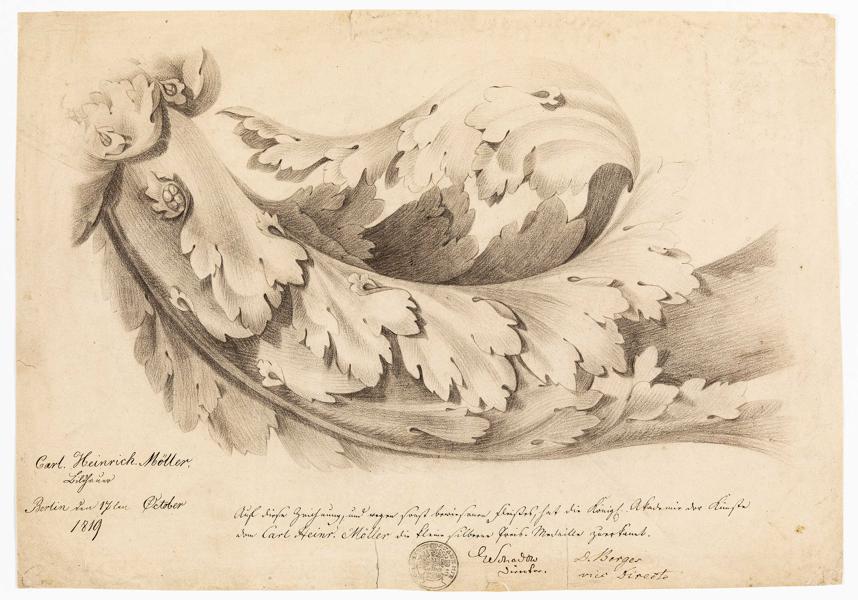 Carl. Heinrich. Möller.
Bildhauer
Berlin den 17ten October
1819
Auf diese Zeichnung, und wegen sonst bewiesenen Fleißes, hat die Königl. Akademie der Künste
dem Carl Heinr. Möller die kleine silberne Preis-Medaille zuerkannt.
GSchadow
Director.
D. Berger
vice Director